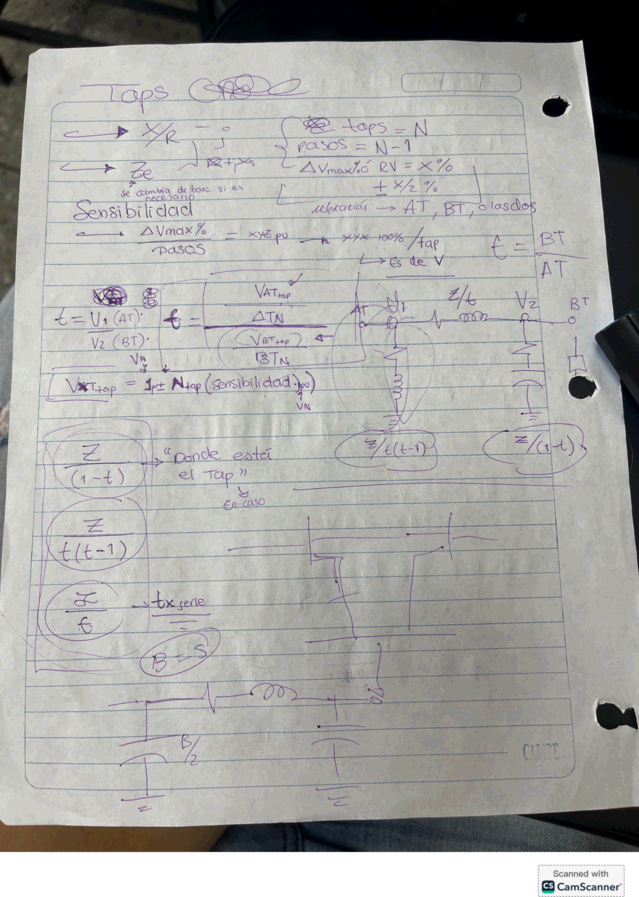 Taps
X/R
Ze
se cambia de base si es necesario
taps = N
pasos = N-1
ΔVmax% ó RV = X%
± X/2 %
→ AT, BT, o las dos
Sensibilidad
ΔVmax% / pasos = xyz pu → xyx 100% / tap
↳ Es de V
t = BT / AT
t = V1 (AT).
V2 (BT).
t = VATtap / ATN
VBTtap / BTN
VN
VxTtap = 1pu ± Ntap (sensibilidad)pu
VN
AT
V1
Z/t
V2
BT
Z/t(t-1)
Z/(1-t)
Z / (1-t) → "Donde está el Tap"
En caso
Z / t(t-1)
Z / t → tx serie
B = S
B/2
Scanned with
CS CamScanner